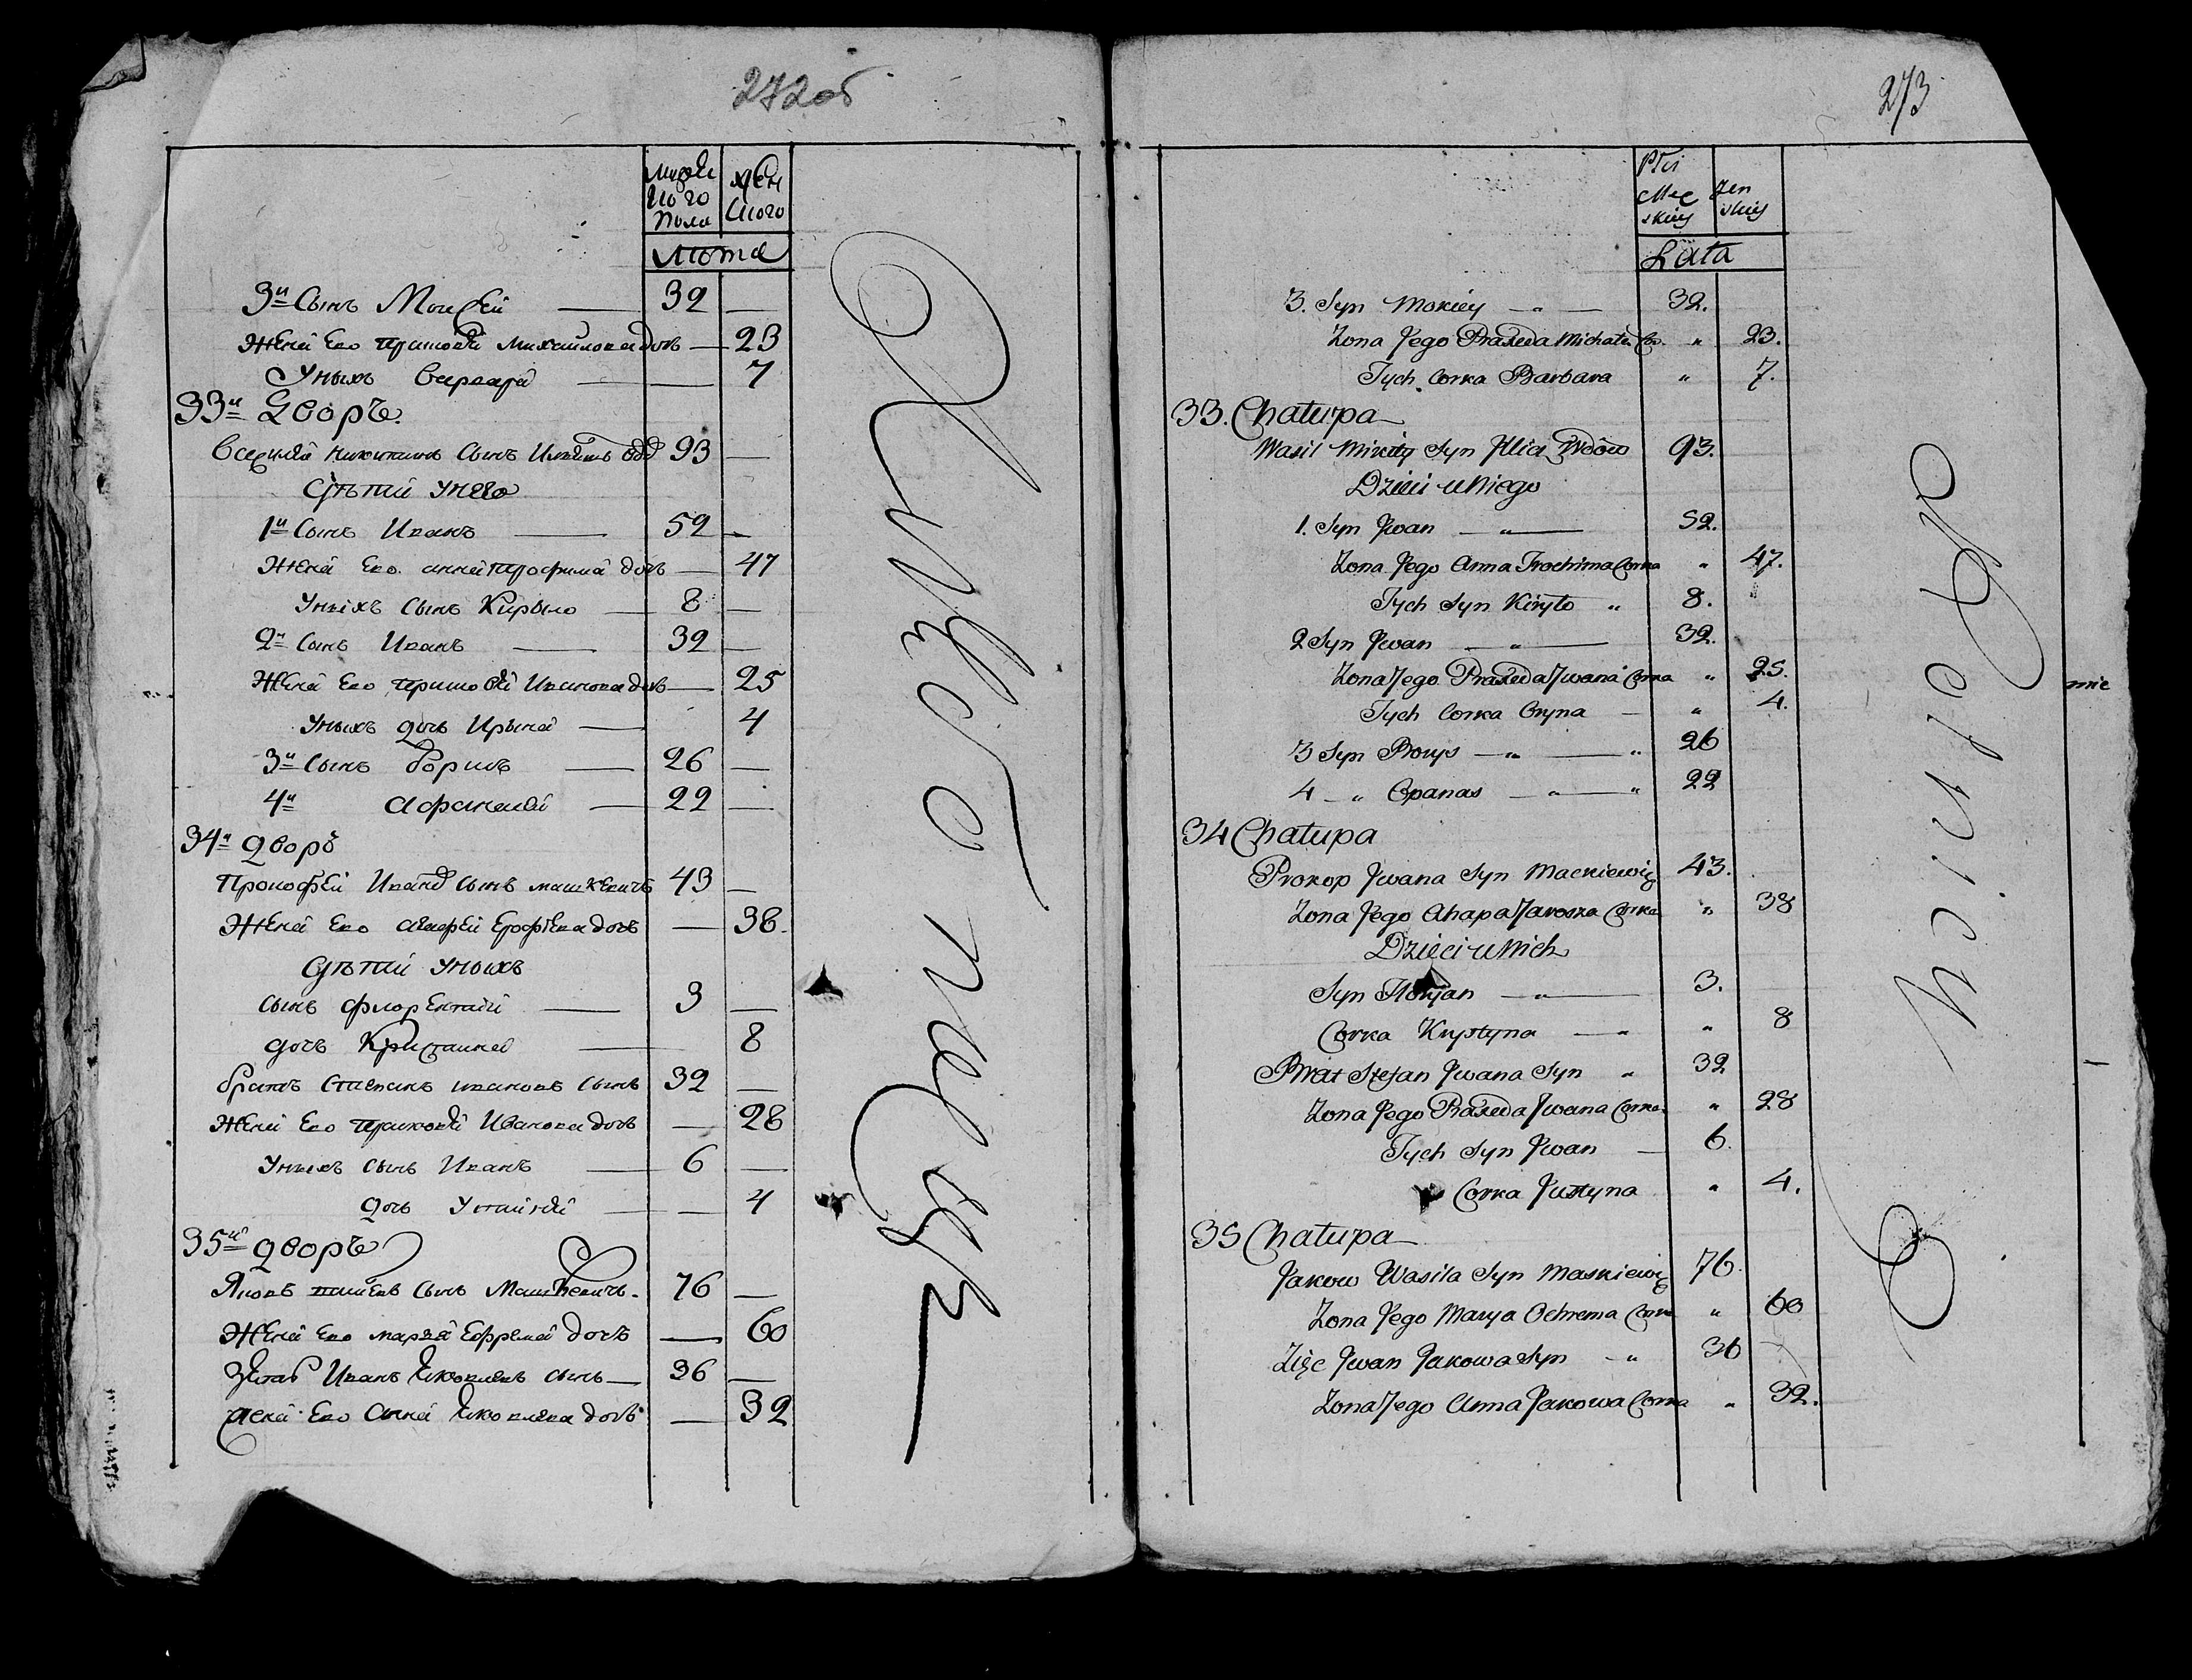 272об
мужес
кого
пола
жен
ского
Лета
3й Сынъ Мокей 32
Жена Его Прасковья Михайлова дочь 23
Уныхъ Варвара 7
33й Дворъ
Василей Никитинъ Сынъ Ильичъ вдо 93
Дѣти У него
1й Сынъ Иванъ 52
Жена Его анна трофима дочь 47
Уныхъ Сынъ Кирыло 8
2й Сынъ Иванъ 32
Жена Его Прасковья Иванова дочь 25
Уныхъ дочь Ирына 4
3й Сынъ Борисъ 26
4й Афанасей 22
34й дворъ
Прокофей Ивана Сынъ машкевичъ 43
Жена Его агафея Ерофеева дочь 38
Дѣти Уныхъ
Сынъ флорентий 3
дочь Кристина 8
братъ Степанъ ивановъ Сынъ 32
Жена Его прасковья Иванова дочь 28
Уныхъ Сынъ Иванъ 6
дочь Устинья 4
35й дворъ
Яковъ Сынъ Машкевичъ 76
Жена Его марья Ефрема дочь 60
Зять Иванъ Яковлевъ сынъ 36
жена Его Анна Яковлева дочь 32
273
Płci
Męz
skiey
żen
skiey
Lata
3. Syn Mokiey 32.
Zona Jego Praxeda Michała Cor. " 23.
Tych Corka Barbara " 7.
33. Chałupa
Wasil Mikity Syn Jlicz Wdow 93.
Dzieci u Niego
1. Syn Jwan 52.
Zona Jego Anna Trochima Corka " 47.
Tych Syn Kiryło " 8.
2 Syn Jwan 32.
Zona Jego Praxeda Jwana Corka " 25.
Tych Corka Oryna " 4.
3 Syn Borys " 26
4 " Opanas " 22
34 Chałupa
Prokop Jwana Syn Mackiewicz 43.
Zona Jego Ahapa Jaroszа Corka " 38
Dzieci u Nich
Syn Floryan 3.
Corka Krystyna " 8
Brat Stefan Jwana Syn " 32
Zona Jego Praxeda Jwana Corka " 28
Tych Syn Jwan 6.
Corka Justyna " 4.
35 Chałupa
Jakow Wasila Syn Maskiewicz 76.
Zona Jego Marya Ochrema Corka " 60
Zięc Jwan Jakowa Syn " 36
Zona Jego Anna Jakowa Corka " 32.